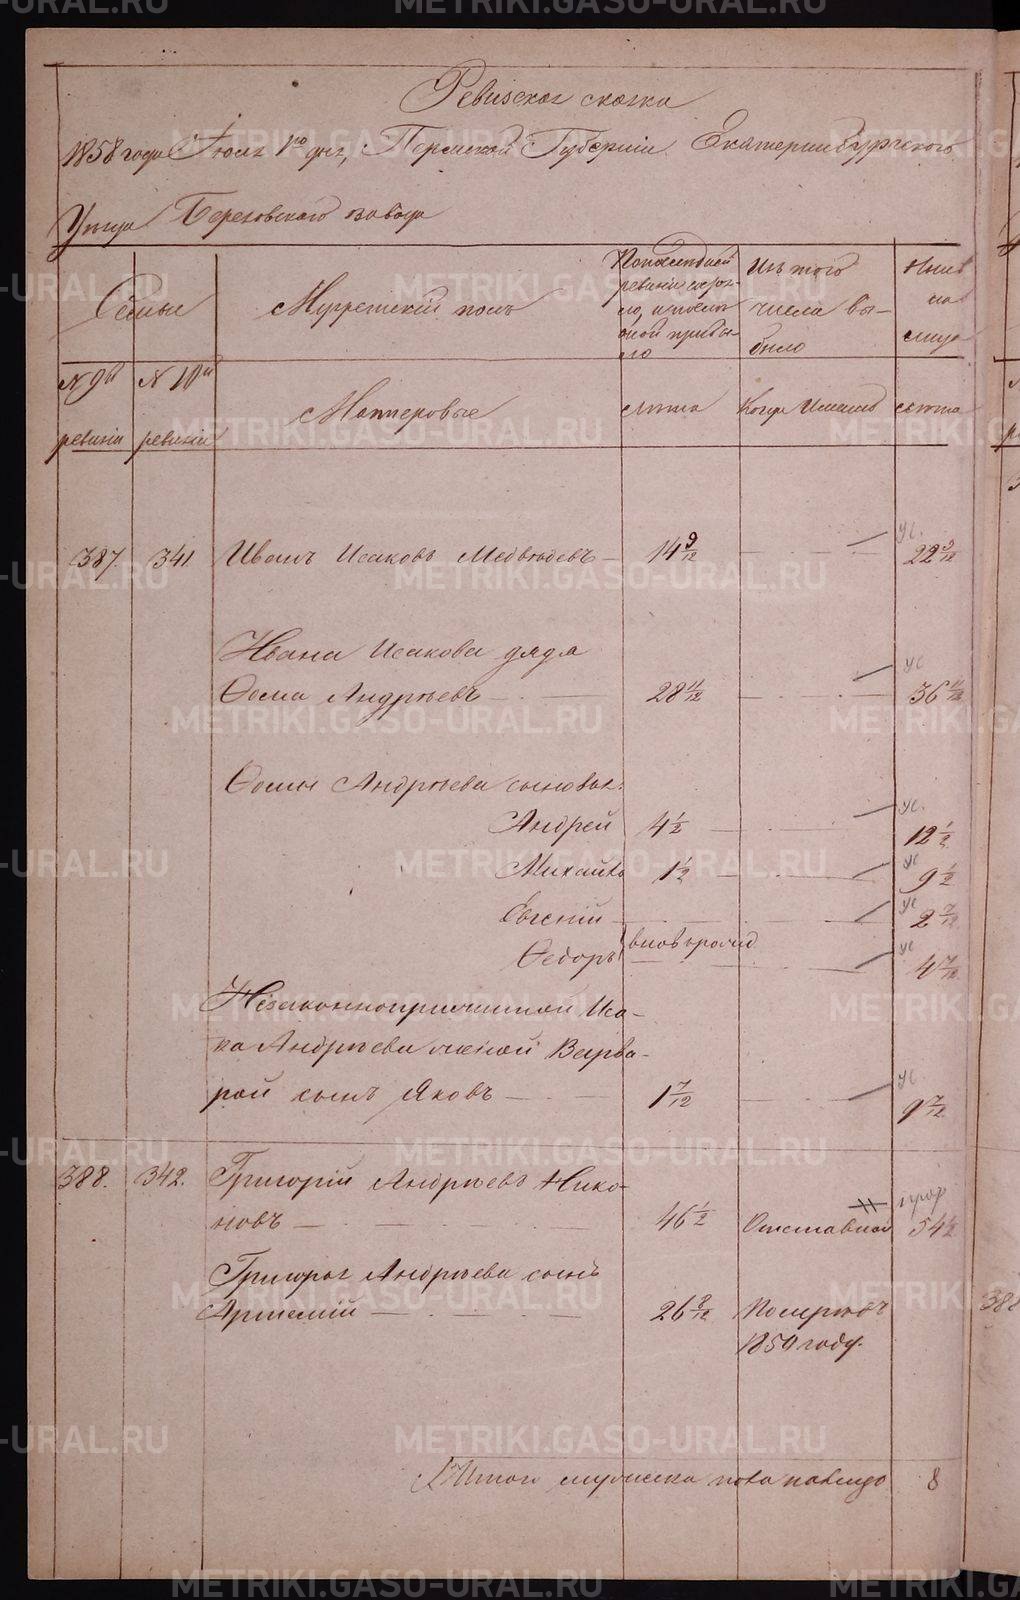 Ревизская сказка
1858 года Июля 1го дня, Пермской Губерніи Екатеринбургскаго
Уѣзда Березовскаго завода
Семьи
Мужескій полъ
По последней ревизіи состояло, и после оной прибыло
Изъ того числа выбыло
Ныне на лицо
№ 9й ревизіи
№ 10й ревизіи
Мастеровые
лѣта
Когда именно
лѣта
387. 341 Иванъ Исаковъ Медвѣдевъ 14 9/12 22 9/12
Ивана Исакова дядя
Ѳома Андрѣевъ 28 11/12 36 11/12
Ѳомы Андрѣева сыновья:
Андрей 4 1/2 12 1/2
Михайло 1 1/2 9 1/2
Евгеній 2 7/12
Ѳедоръ вновь рожд 4 7/12
Незаконноприжитой Иса-
ка Андрѣева женой Варва-
рой сынъ Яковъ 1 7/12 9 7/12
388. 342. Григорій Андрѣевъ Нико-
новъ 46 1/2 Отставной 54 1/2
Григорья Андрѣева сынъ
Артемій 26 Помер въ
185 году.
Итого мужеска пола на лицо 8
METRIKI.GASO-URAL.RU